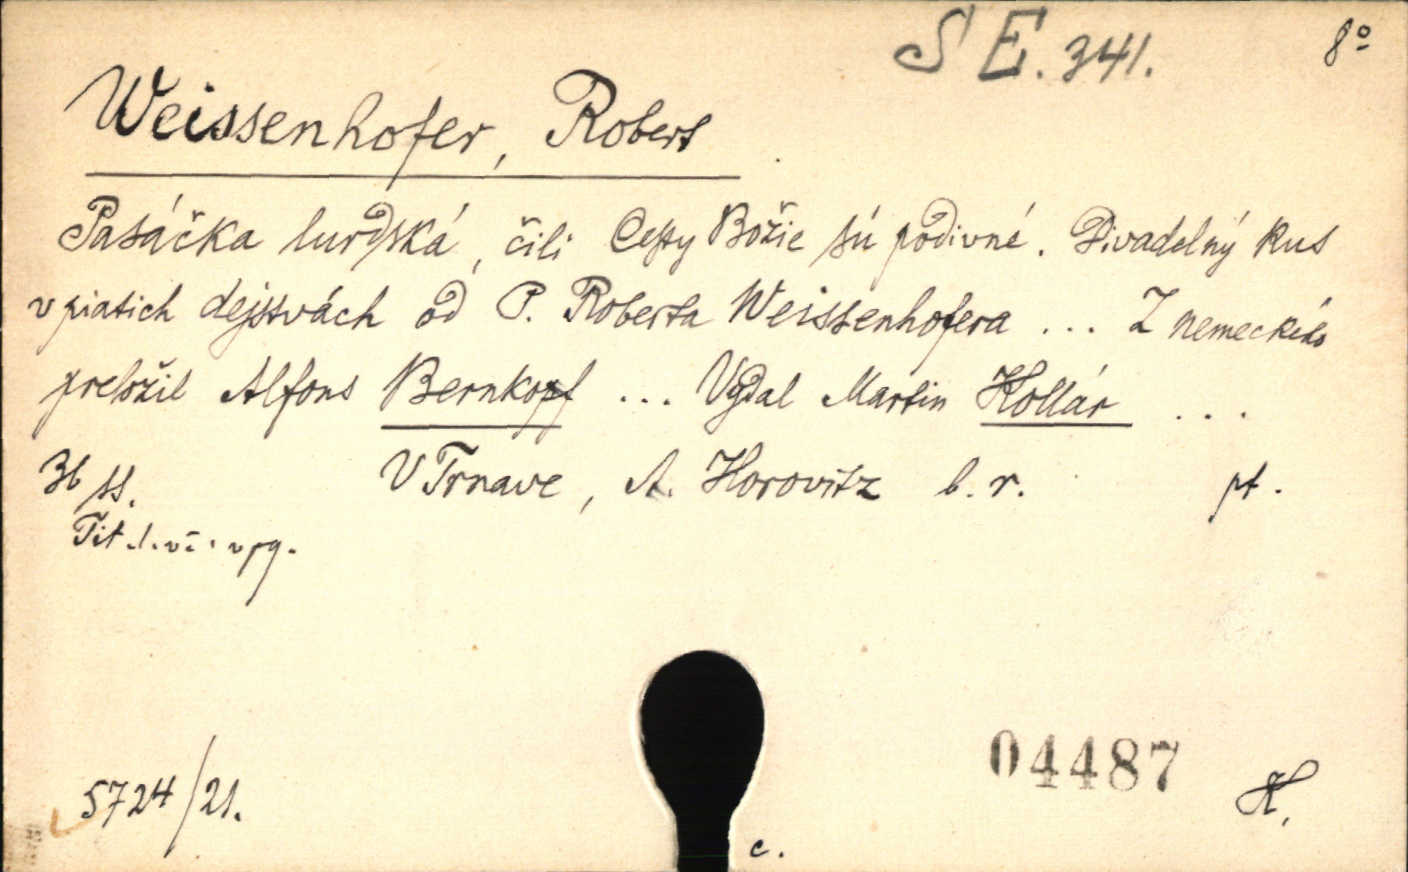 S E. 341.
8º
Weissenhofer, Robert
Pasáčka lurdská, čili Cesty Božie sú podivné. Divadelný kus
v piatich dejstvách od P. Roberta Weissenhofera ... Z nemeckého
preložil Alfons Bernkopf ... Vydal Martin Kollár ...
36 ss. V Trnave, A. Horovitz b. r. pt.
Tit. l.
5724/21.
04487
H.
c.